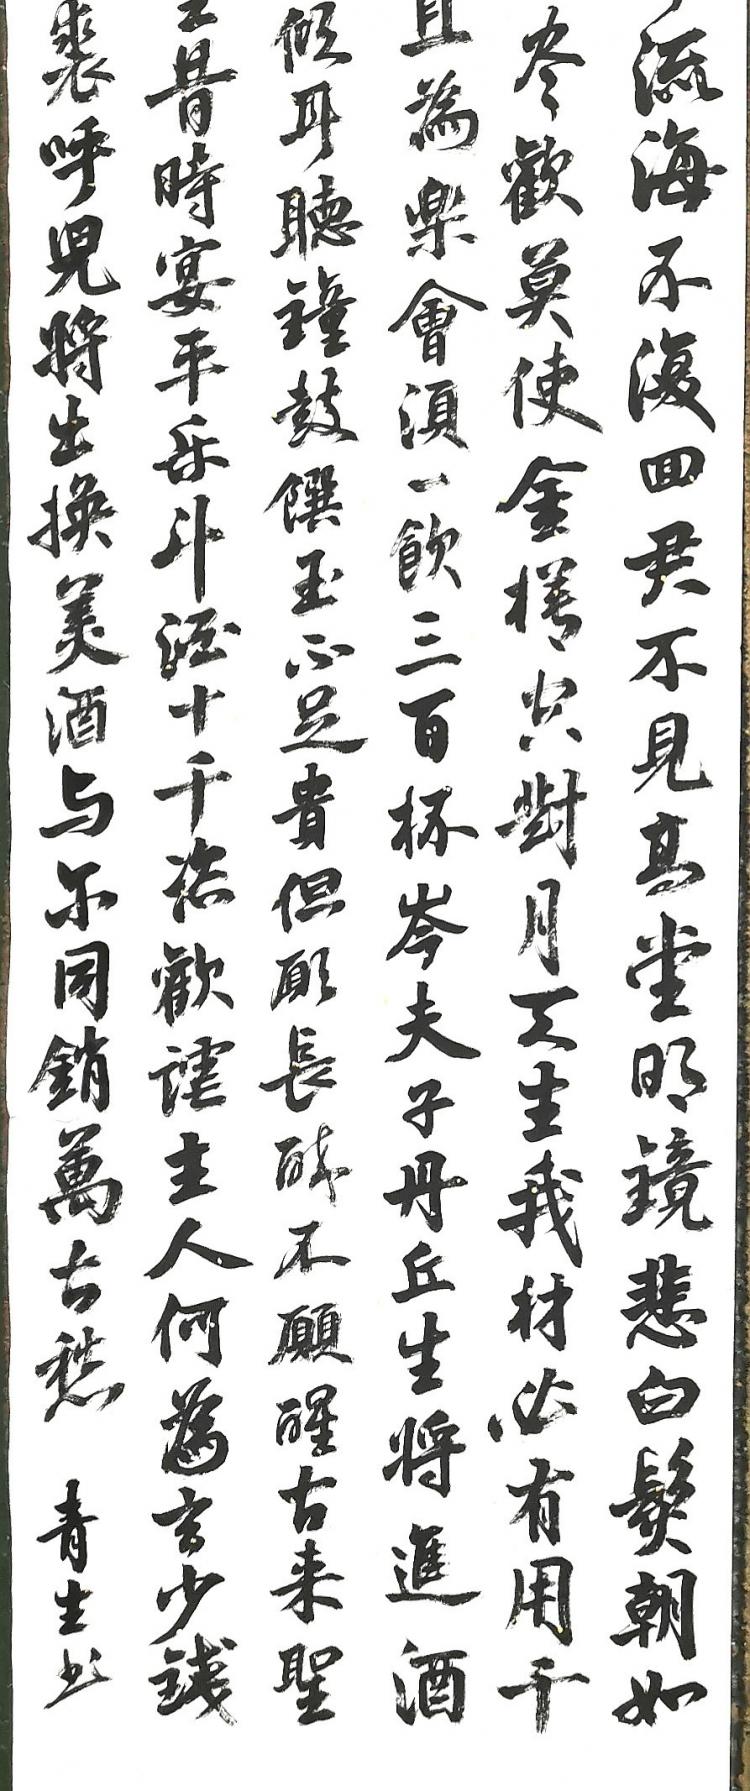 流海不復回君不見高堂明鏡悲白髮朝如
尽歡莫使金樽空對月天生我材必有用千
且為樂會須一飲三百杯岑夫子丹丘生将進酒
傾耳聽鐘鼓饌玉不足貴但願長醉不願醒古来聖
昔時宴平乐斗酒十千恣歡謔主人何為言少錢
裘呼兒将出換美酒与尔同銷萬古愁 青生书